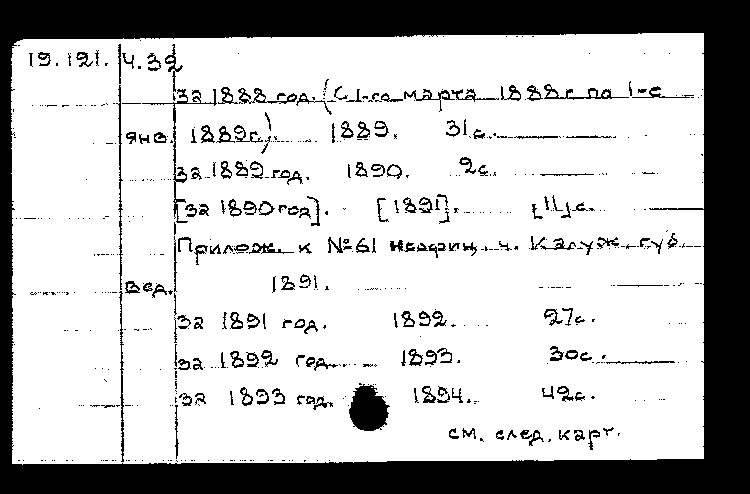 19.121. Ч.32
за 1888 год. (С 1-го марта 1888г по 1-е
янв. 1889г.). 1889. 31с.
за 1889 год. 1890. 2с.
[за 1890 год]. [1891]. [11]с.
Прилож. к №61 неофиц. ч. Калуж. губ.
вед. 1891.
за 1891 год. 1892. 27с.
за 1892 год. 1893. 30с.
за 1893 год. 1894. 42с.
см. след. карт.